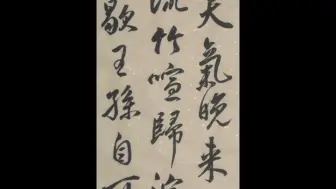 天氣晚来
流竹喧歸浣
歇王孫自可